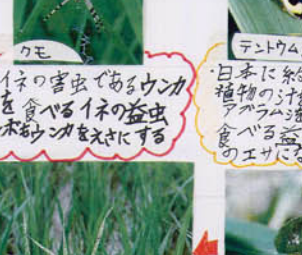 クモ
イネの害虫であるウンカ
を食べるイネの益虫
ウンカをえさにする
テントウム
・日本に
植物の汁
アブラム
食べる益
のエサに